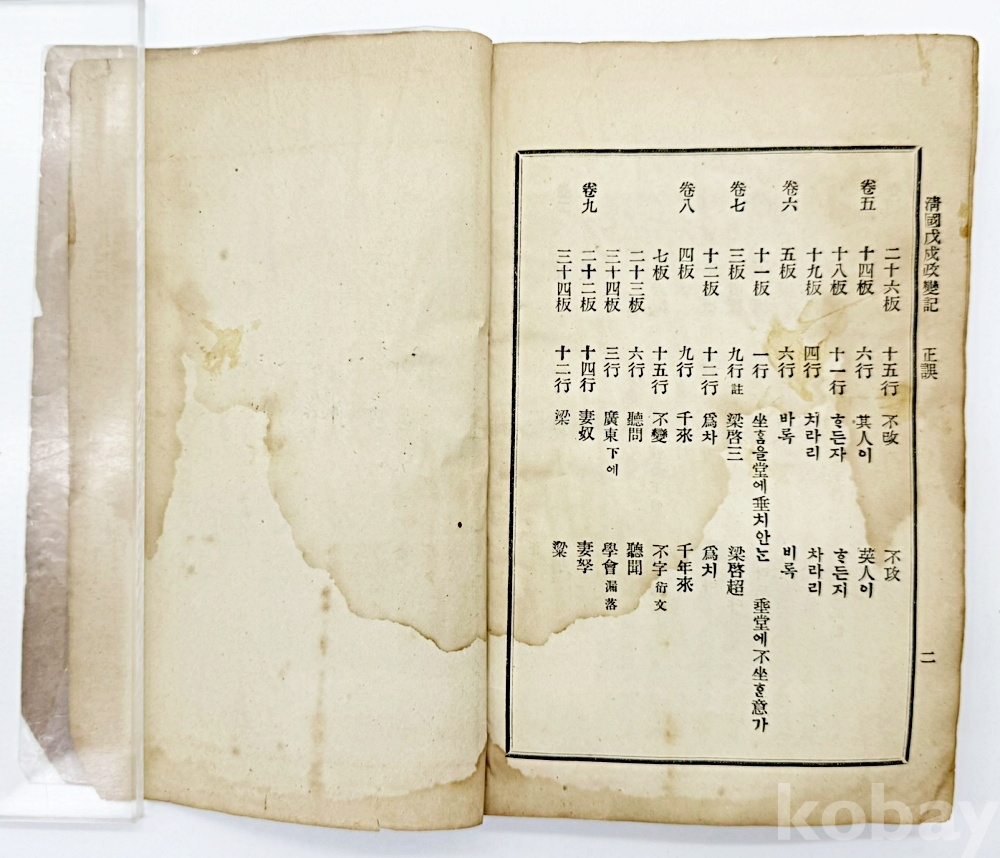 淸國戊戌政變記 正誤 二
二十六板 十五行 不改 不攻
卷五 十四板 六行 其人이 英人이
十八板 十一行 ᄒᆞ든자 ᄒᆞ든지
十九板 四行 처라리 차라리
卷六 五板 六行 바록 비록
十一板 一行 坐ᄒᆞᆷ을堂에垂치안ᄂᆞᆫ 垂堂에不坐ᄒᆞᆯ意가
卷七 三板 九行 註 梁啓三 梁啓超
十二板 十二行 爲차 爲치
卷八 四板 九行 千來 千年來
七板 十五行 不變 不字 衍文
二十三板 六行 聽問 聽聞
三十四板 三行 廣東 下에 學會 漏落
卷九 二十二板 十四行 妻奴 妻孥
三十四板 十二行 梁 粱
kobay